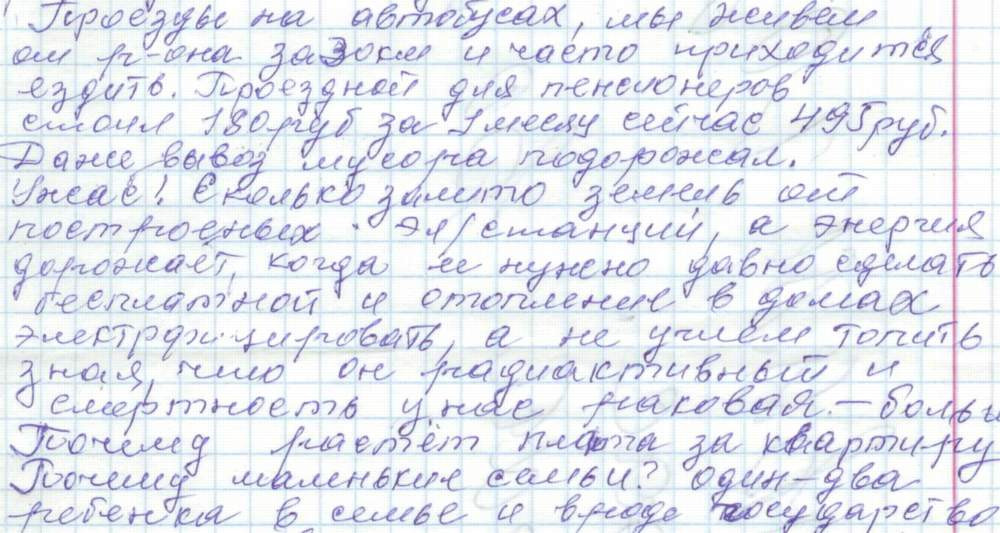 Проезды на автобусах, мы живём
от р-она за 30км и часто приходится
ездить. Проездной для пенсионеров
стоил 180руб за 1 месяц сейчас 495руб.
Даже вывоз мусора подорожал.
Ужас! Сколько залито земель от
построеных эл/станций, а энергия
дорожает, когда её нужно давно сделать
бесплатной и отопление в домах
электрофицировать, а не углем топить
зная, что он радиактивный и
смертность у нас раковая – больш
Почему растёт плата за квартиру
Почему маленькие семьи? один–два
ребенка в семье и вроде государство